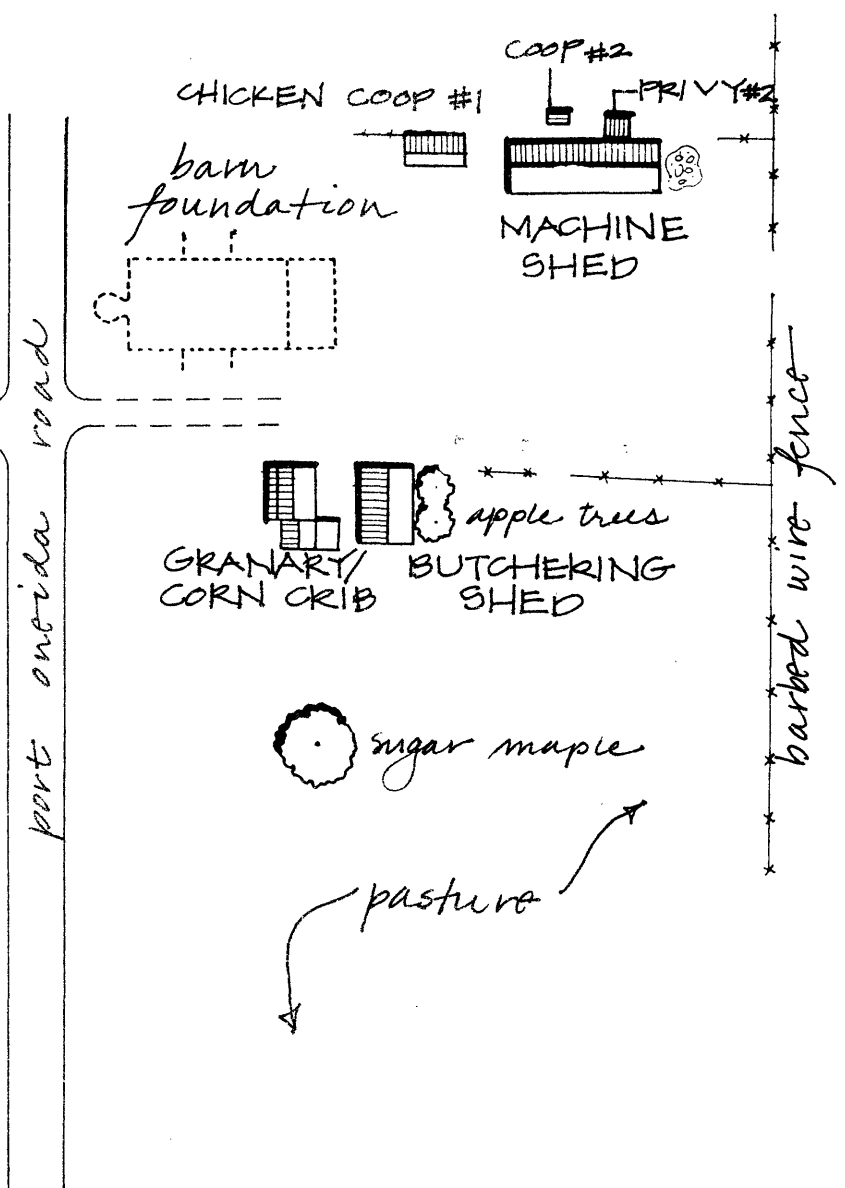 COOP #2
CHICKEN COOP #1
PRIVY #2
barn
foundation
MACHINE
SHED
port oneida road
barbed wire fence
apple trees
GRANARY/
CORN CRIB
BUTCHERING
SHED
sugar maple
pasture